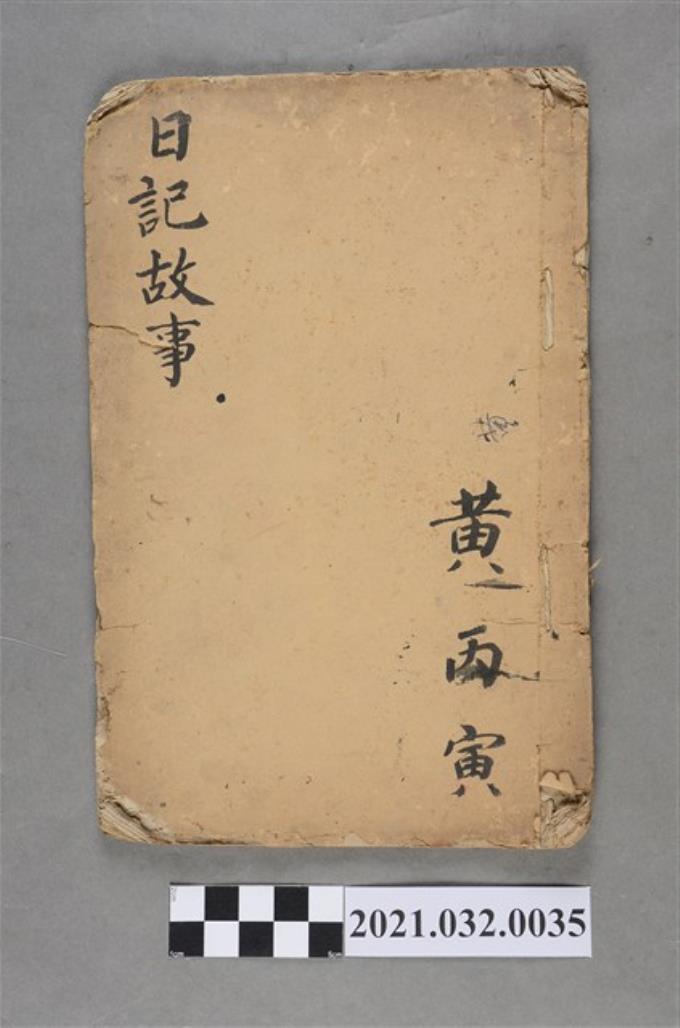 日記故事
黃丙寅
2021.032.0035